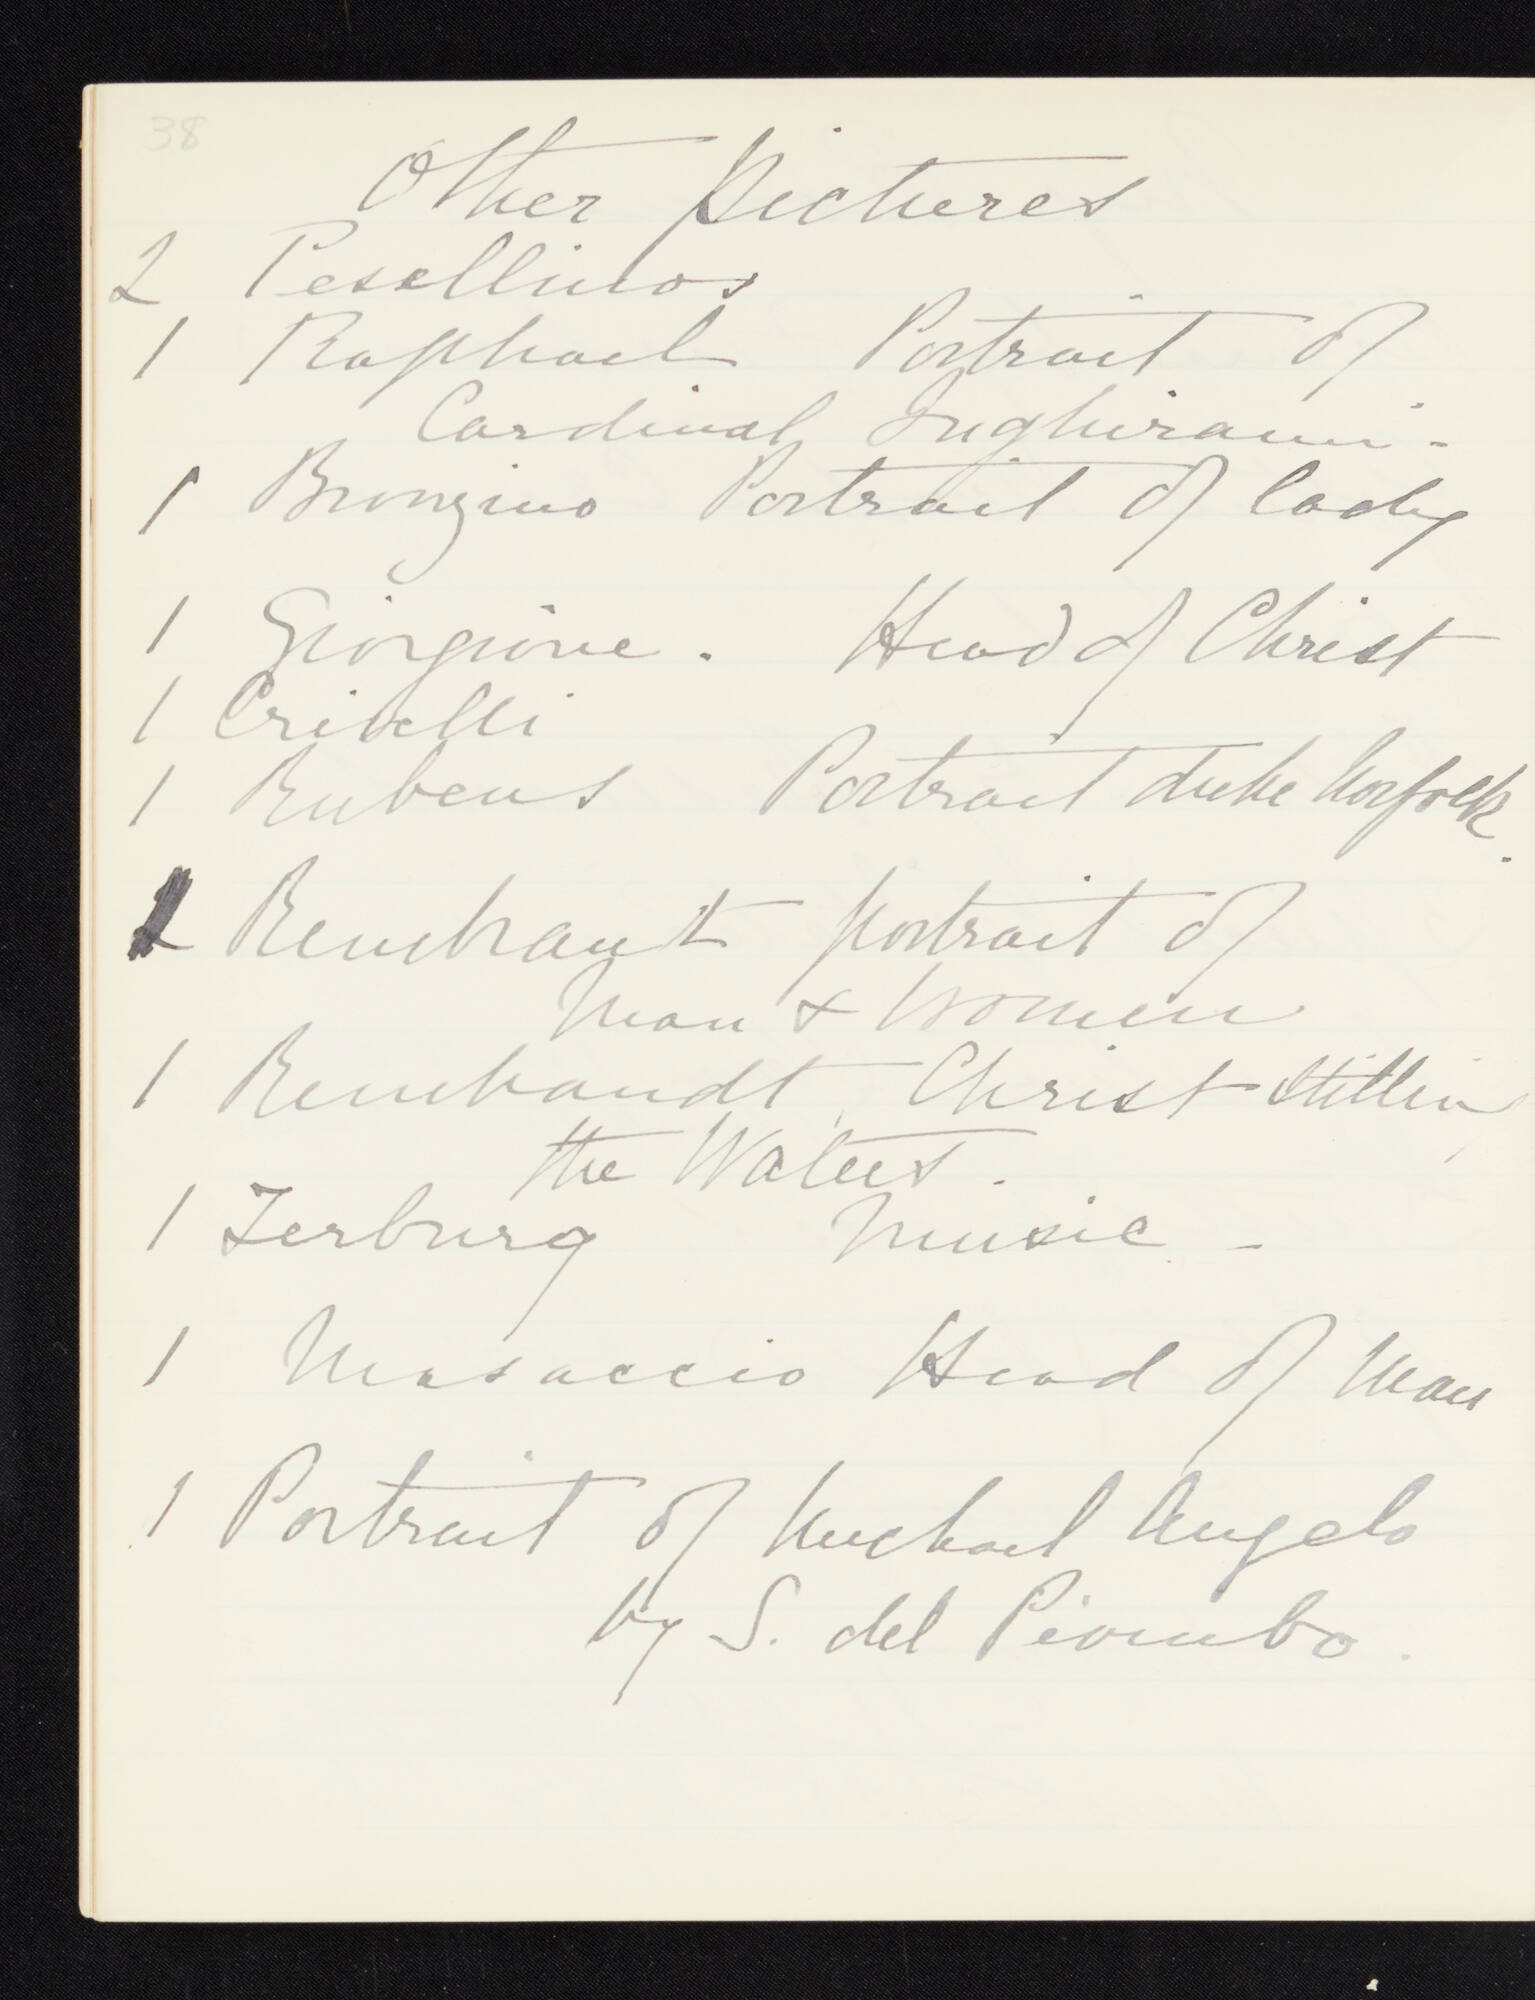 38
Other Pictures
2 Pesellinos
1 Raphael Portrait of
Cardinal Inghirami -
1 Bronzino Portrait of lady
1 Giorgione . Head of Christ
1 Crivelli
1 Rubens Portrait duke Norfolk.
2 Rembrant portrait of
Man & Women
1 Rembandt Christ stillin
the Waters .
1 Terburg Music -
1 Masaccio Head of Man
1 Portrait of Michael Angelo
by S. del Piombo .